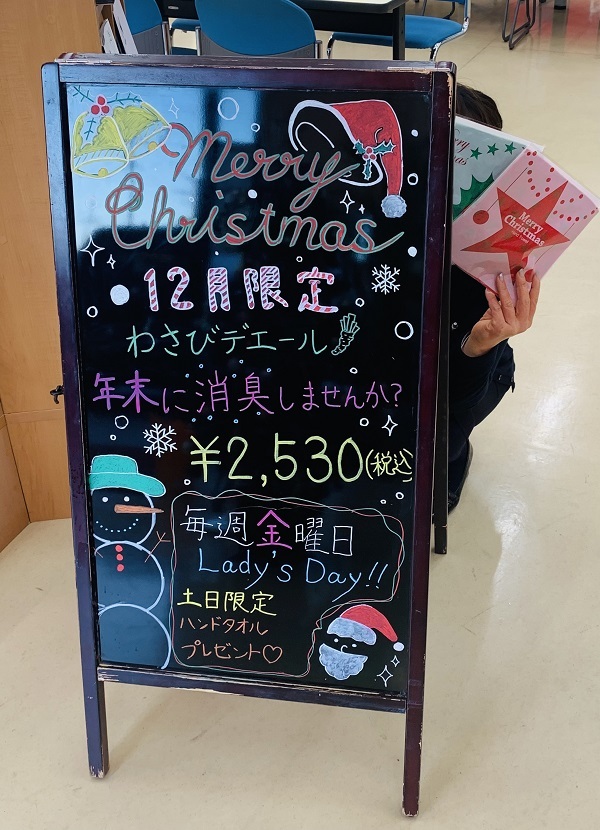 Merry
Christmas
12月限定
わさびデエール
年末に消臭しませんか?
¥2,530(税込)
毎週金曜日
Lady's Day!!
土日限定
ハンドタオル
プレゼント♡
Merry
Christmas